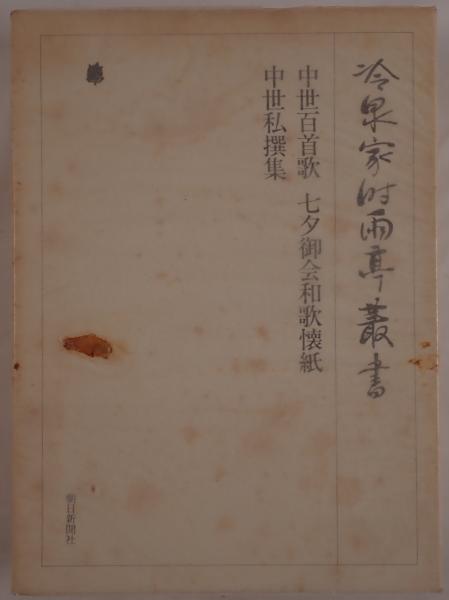 冷泉家時雨亭叢書
中世百首歌 七夕御会和歌懐紙
中世私撰集
朝日新聞社